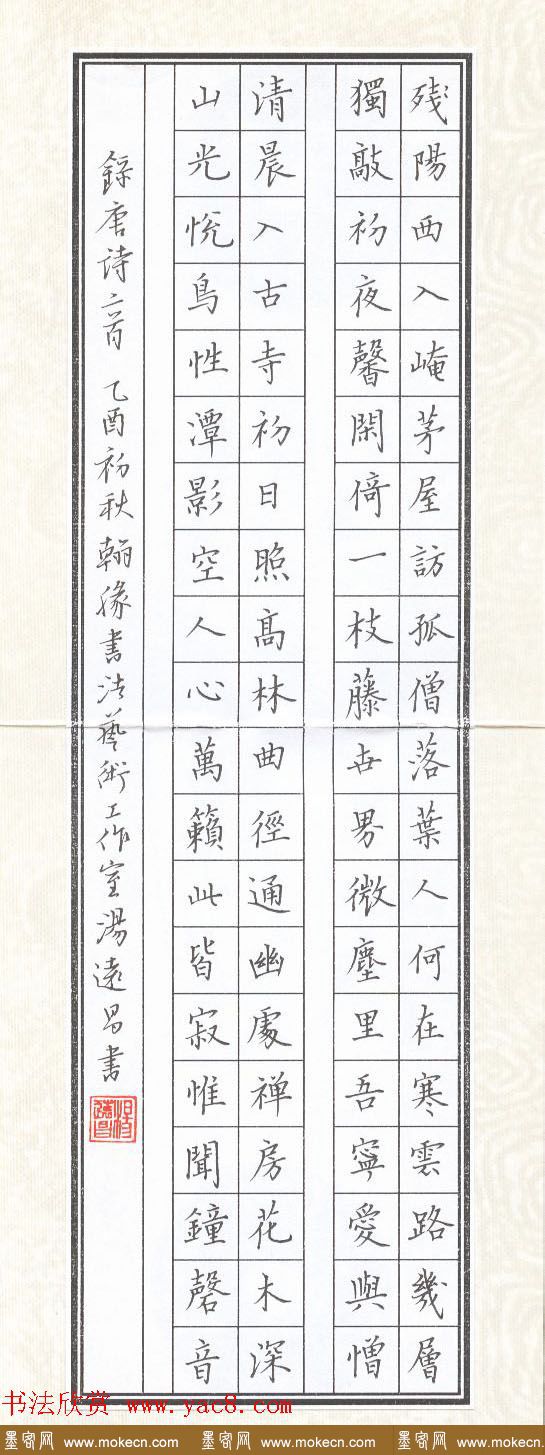 残陽西入崦茅屋訪孤僧落葉人何在寒雲路幾層
獨敲初夜馨閑倚一枝藤世界微塵里吾寧愛與憎
清晨入古寺初日照髙林曲徑通幽處禅房花木深
山光悦鳥性潭影空人心萬籟此皆寂惟聞鐘磬音
錄唐詩二首 乙酉初秋翰緣書法藝術工作室湯遠昌書
书法欣赏 www.yac8.com
墨客网 www.mokecn.com 墨客网 www.mokecn.com 墨客网 www.mokecn.com